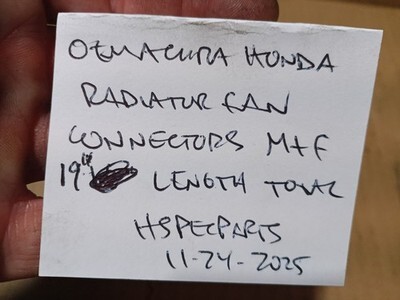 OEM ACURA HONDA
RADIATOR FAN
CONNECTORS M+F
19" LENGTH TOTAL
HSPECPARTS
11-24-2025